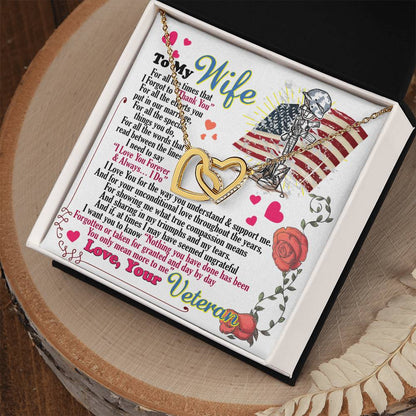 To My Wife
For all the times that
I Forgot to "Thank You"
For all the efforts you
put in our marriage,
For all the special
things you do,
For all the words that
read between the lines
I need to say
"I Love You Forever
& Always... I Do"
I Love You for the way you understand & support me.
And for your unconditional love throughout the years,
For showing me what true compassion means
And sharing in my triumphs and my tears.
And if, at times I may have seemed ungrateful
I want you to know "Nothing you have done has been
Forgotten or taken for granted and day by day
You only mean more to me"
Love, Your Veteran